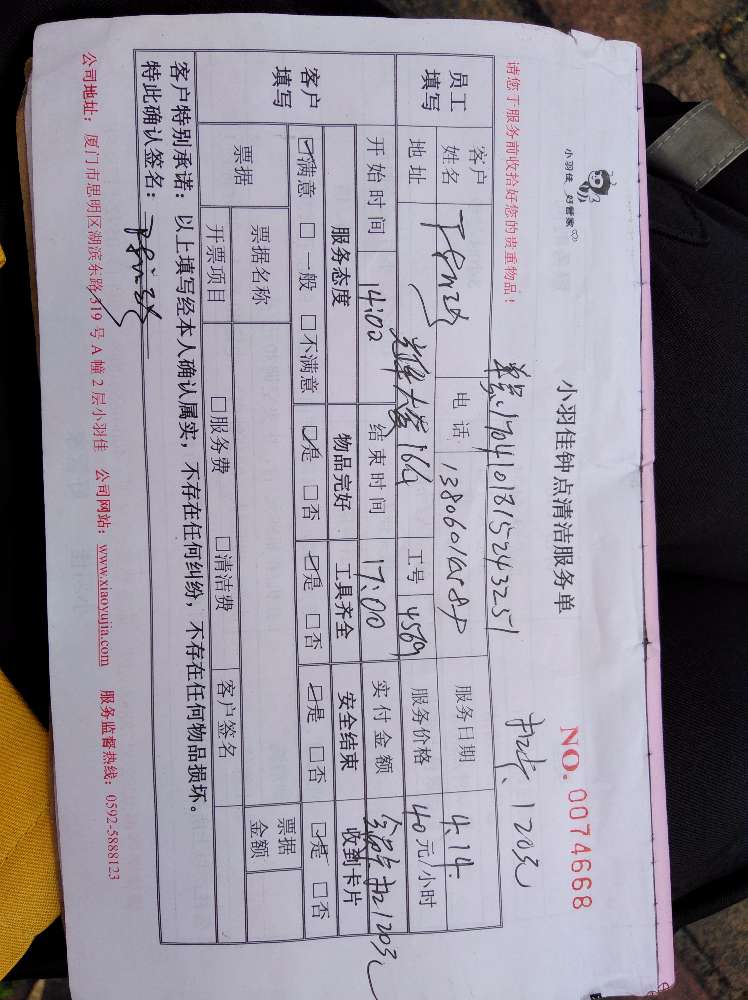 小羽佳 好管家
小羽佳钟点清洁服务单
NO. 0074668
请您于服务前收拾好您的贵重物品!
120元
员工填写
客户姓名
电话
服务日期 4.14
地址 16G
工号 4569
服务价格 40元/小时
开始时间 14:00
结束时间 17:00
实付金额 120元
客户填写
服务态度 物品完好 工具齐全 安全结束 收到卡片
☑满意 □一般 □不满意 ☑是 □否 ☑是 □否 ☑是 □否 ☑是 □否
票据
票据名称
票据金额
开票项目 □服务费 □清洁费
客户签名
客户特别承诺:以上填写经本人确认属实,不存在任何纠纷,不存在任何物品损坏。
特此确认签名:
公司地址:厦门市思明区湖滨东路319号A幢2层小羽佳 公司网站:www.xiaoyujia.com 服务监督热线:0592-5888123